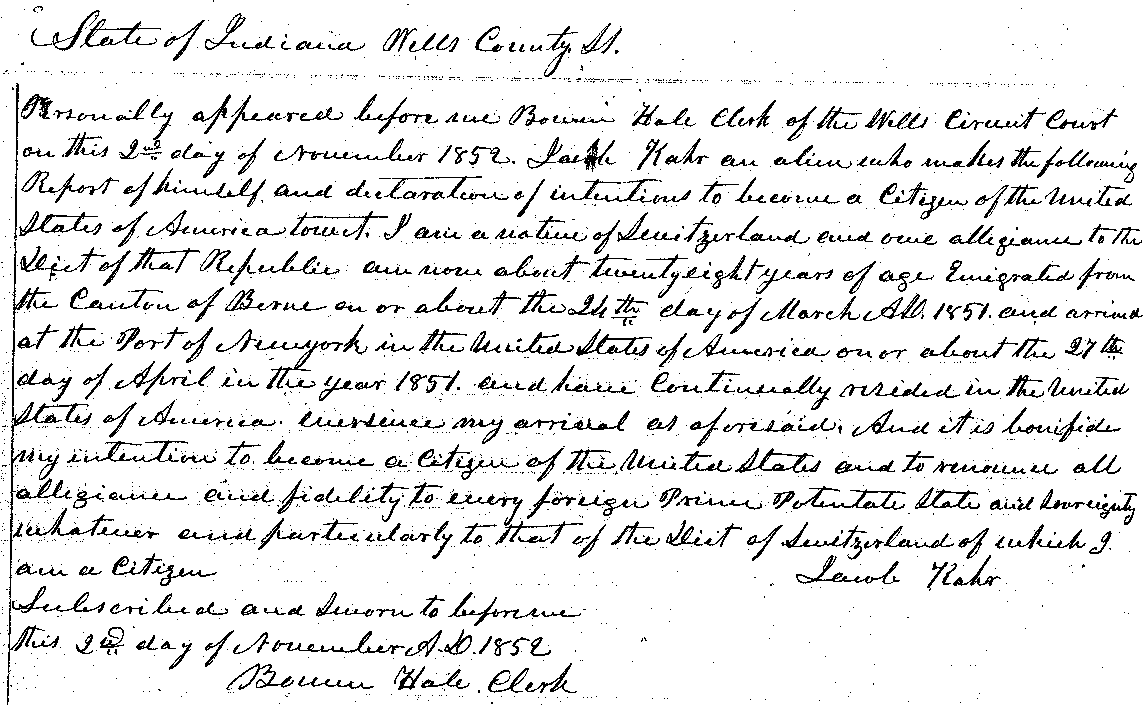 State of Indiana Wells County Ss.
Personally appeared before me Bowen Hale Clerk of the Wells Circuit Court
on this 2nd day of November 1852. Jacob Kahr an alien who makes the following
Report of himself and declaration of intentions to become a Citizen of the United
States of America towit. I am a native of Switzerland and owe allegiance to the
Diet of that Republic am now about twentyeight years of age Emigrated from
the Canton of Berne on or about the 24th day of March A.D. 1851. and arrived
at the Port of Newyork in the United States of America on or about the 27th
day of April in the year 1851. and have Continually resided in the United
States of America. eversince my arrival as aforesaid. And it is bonifide
my intention to become a Citizen of the United States and to renounce all
allegiance and fidelity to every foreign Prince Potentate State and Sovreignty
whatever and particularly to that of the Diet of Switzerland of which I
am a Citizen Jacob Kahr
Subscribed and Sworn to before me
this 2nd day of November A.D. 1852
Bowen Hale Clerk